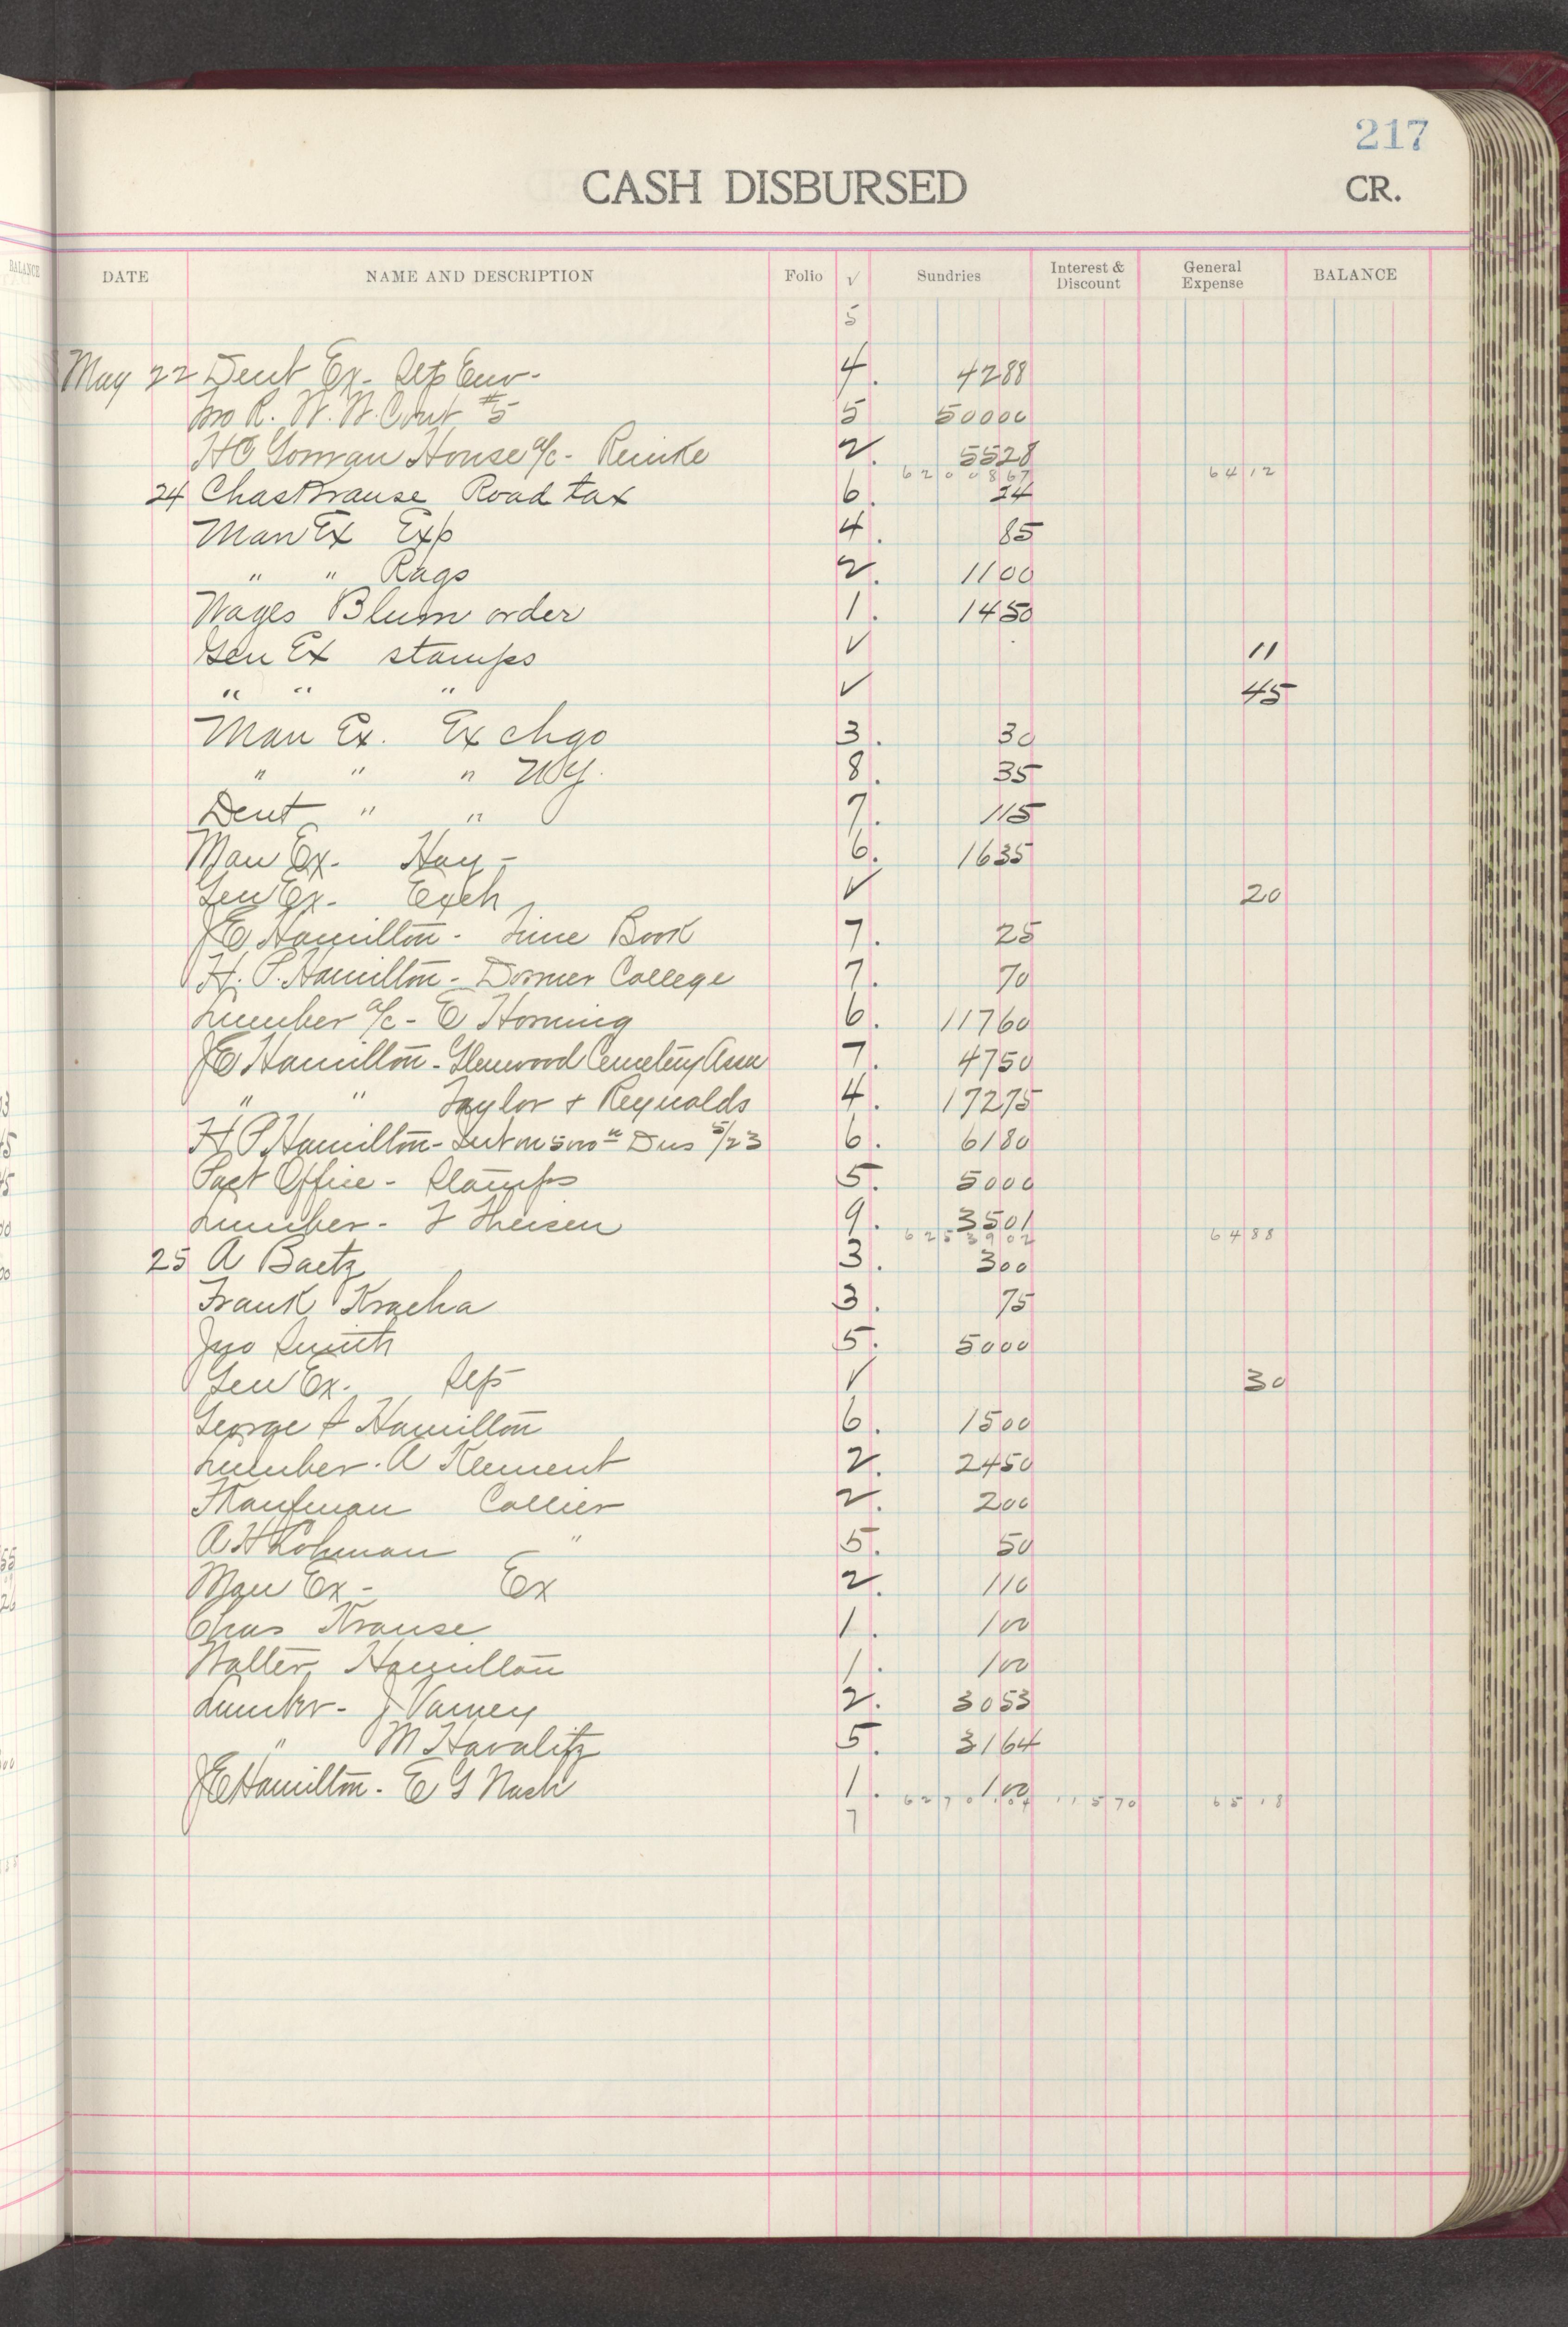 217
CASH DISBURSED CR.
DATE NAME AND DESCRIPTION Folio √ Sundries Interest & Discount General Expense BALANCE
5
May 22 Dent Ex- 4. 4288
R. W. W. Cont #5 5 50000
House a/c- Reinke 2. 5528
6200867 6412
24 Chas Krause Road tax 6. 24
Man Ex Exp 4. 85
" " Rags 2. 1100
Wages Blum order 1. 1450
Gen Ex stamps √ 11
" " " √ 45
Man Ex. Ex chgo 3. 30
" " " NY. 8. 35
Dent " " 7. 115
Man Ex. Hay - 6. 1635
Gen Ex- Exch √ 20
JE Hamilton- Time Book 7. 25
H. P. Hamilton- Dormer College 7. 70
Lumber a/c- E Horning 6. 11760
JE Hamilton- Glenwood Cemetery Assn 7. 4750
" " Taylor + Reynolds 4. 17275
H P Hamilton- Dus 5/23 6. 6180
Post Office- Stamps 5. 5000
Lumber- J Theisen 9. 3501
6253902 6488
25 A Baetz 3. 300
Frank Kracha 3. 75
Jno Smith 5. 5000
Gen Ex. √ 30
George S Hamilton 6. 1500
Lumber. A Klement 2. 2450
Kaufman Collier 2. 200
A H Lohman " 5. 50
Man Ex- Ex 2. 110
Chas Krause 1. 100
Walter Hamilton 1. 100
Lumber- J Varney 2. 3053
" M Havalitz 5. 3164
JE Hamilton. E G Nash 1. 100
11570 6518
7